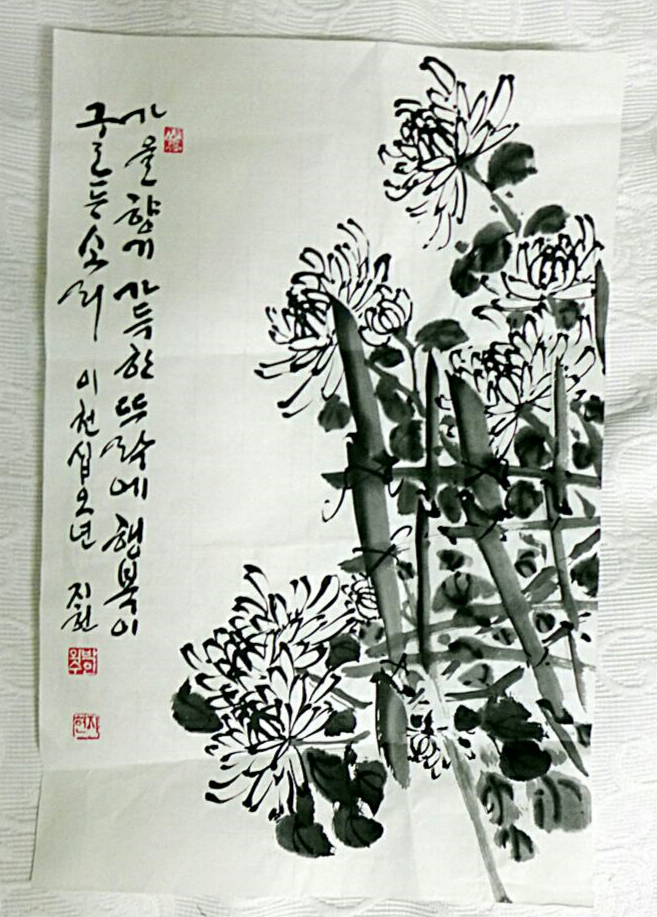 가을 향기 가득한 뜨락에 행복이
구르는 소리 이천십오년 지헌